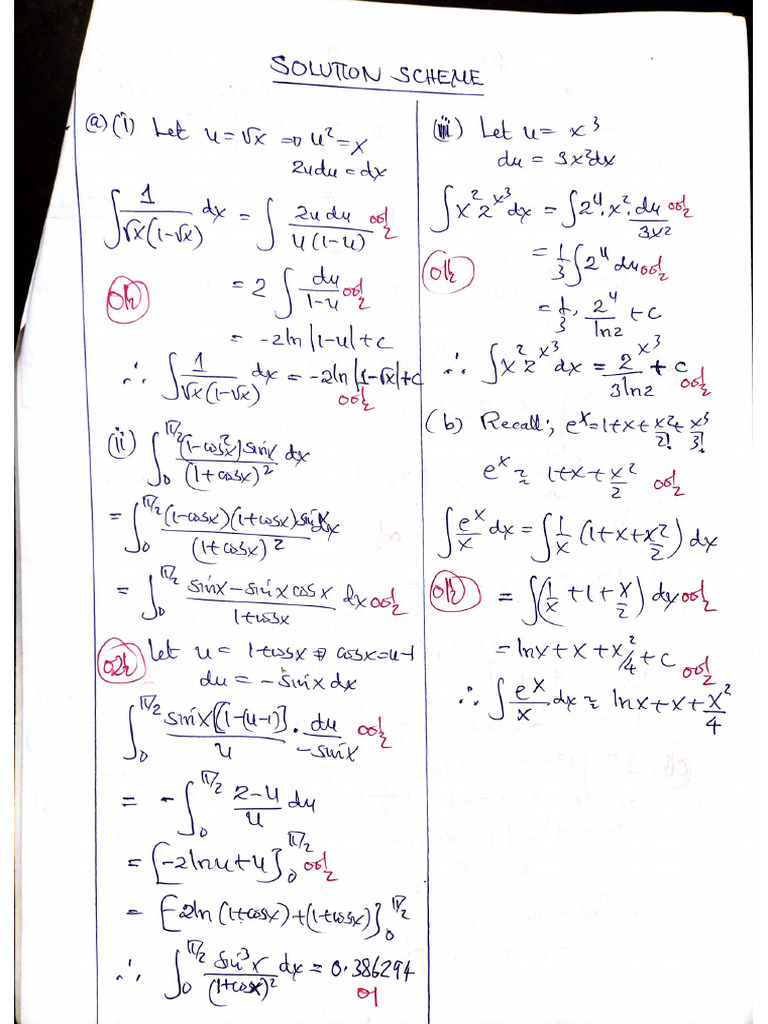 SOLUTION SCHEME
(a)(i) Let u = √x ⇒ u² = x
2udu = dx
∫ 1/(√x(1-√x)) dx = ∫ 2u du/(u(1-u)) 00½
01½
= 2 ∫ du/(1-u) 00½
= -2ln|1-u|+c
∴ ∫ 1/(√x(1-√x)) dx = -2ln|1-√x|+c
00½
(ii) ∫₀^{π/2} (1-cos²x)sinx/(1+cosx)² dx
= ∫₀^{π/2} (1-cosx)(1+cosx)sinx dx/(1+cosx)²
= ∫₀^{π/2} (sinx-sinxcosx)/(1+cosx) dx 00½
02½
let u = 1+cosx ⇒ cosx=u-1
du = -sinx dx
∫₀^{π/2} sinx[1-(u-1)]/u · du/-sinx 00½
= -∫₀^{π/2} (2-u)/u du
= [-2lnu+u]₀^{π/2} 00½
= [-2ln(1+cosx)+(1+cosx)]₀^{π/2}
∴ ∫₀^{π/2} sin³x/(1+cosx)² dx = 0.386294
01
(iii) Let u = x³
du = 3x²dx
∫x²2^{x³}dx = ∫2^u·x²·du/3x² 00½
01½
= 1/3 ∫2^u du 00½
= 1/3 · 2^u/ln2 + c
∴ ∫x²2^{x³}dx = 2^{x³}/3ln2 + c 00½
(b) Recall; e^x=1+x+x²/2!+x³/3!
e^x ≈ 1+x+x²/2 00½
∫e^x/x dx = ∫1/x (1+x+x²/2) dx
01½
= ∫(1/x+1+x/2) dx 00½
= lnx+x+x²/4+c 00½
∴ ∫e^x/x dx ≈ lnx+x+x²/4